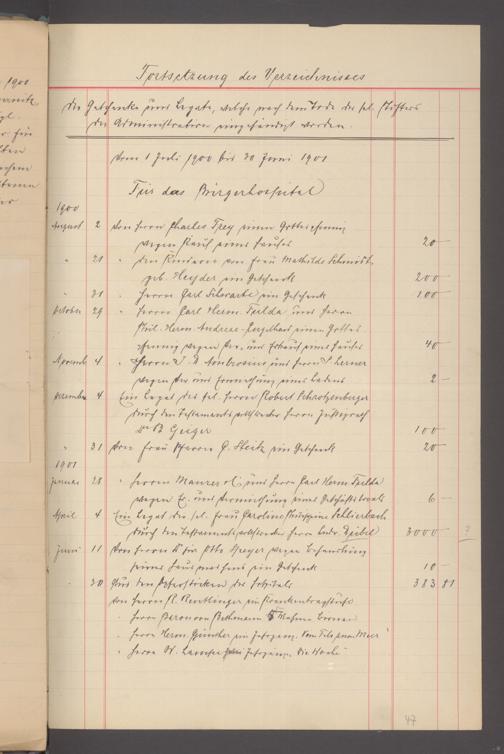 Fortsetzung des Verzeichnisses
der Geschenke und Legate, welche nach dem Tode des sel. Stifters
der Administration eingehändigt worden.
Vom 1 Juli 1900 bis 30 Juni 1901
Für das Bürgerhospital
1900
August 2 Von Herrn Charles Frey einen Gottespfennig
wegen Kauf eines Hauses 20 —
" 21 " den Kindern von Frau Mathilde Schmidt
geb. Heyder ein Geschenk 200 —
" 31 " Herrn Carl Schwartz ein Geschenk 100 —
October 29 " Herrn Carl Herm. und Herrn
Phil. Herm. Andreae einen Gottes-
pfennig wegen Ver- und Erkauf eines Hauses 40 —
Novemb. 4 " Herrn J. A. Ambrosius und Herrn J. Lerner
wegen Ver und Ermiethung eines Ladens 2 —
December 4 Ein Legat des sel. Herrn Robert Schrotzenberger
durch den Testamentsvollstrecker Herrn Justizrath
Dr. B. Geiger 100 —
" 31 Von Frau Pfarrer G. Steitz ein Geschenk 20 —
1901
Januar 28 " Herrn Maurer und Herrn Carl Herm.
wegen Er- und Vermiethung eines Geschäftslocals 6 —
April 4 Ein Legat der sel. Frau Caroline Philippine Schlierbach
durch den Testamentsvollstrecker Herrn 3000 — ?
Juni 11 Von Herrn Dr. jur. Otto Geyer wegen Behandlung
seines Hausmädchens ein Geschenk 10 —
" 30 Aus den Opferstöcken des Hospitals 383 81
Von Herrn R. Reutlinger ein
" Herrn Baron von Bethmann 5
" Herrn Herm. Günther ein Jahrgang "Vom Fels zum Meer"
" Herrn W. Jahrgang "Die Woche"
47